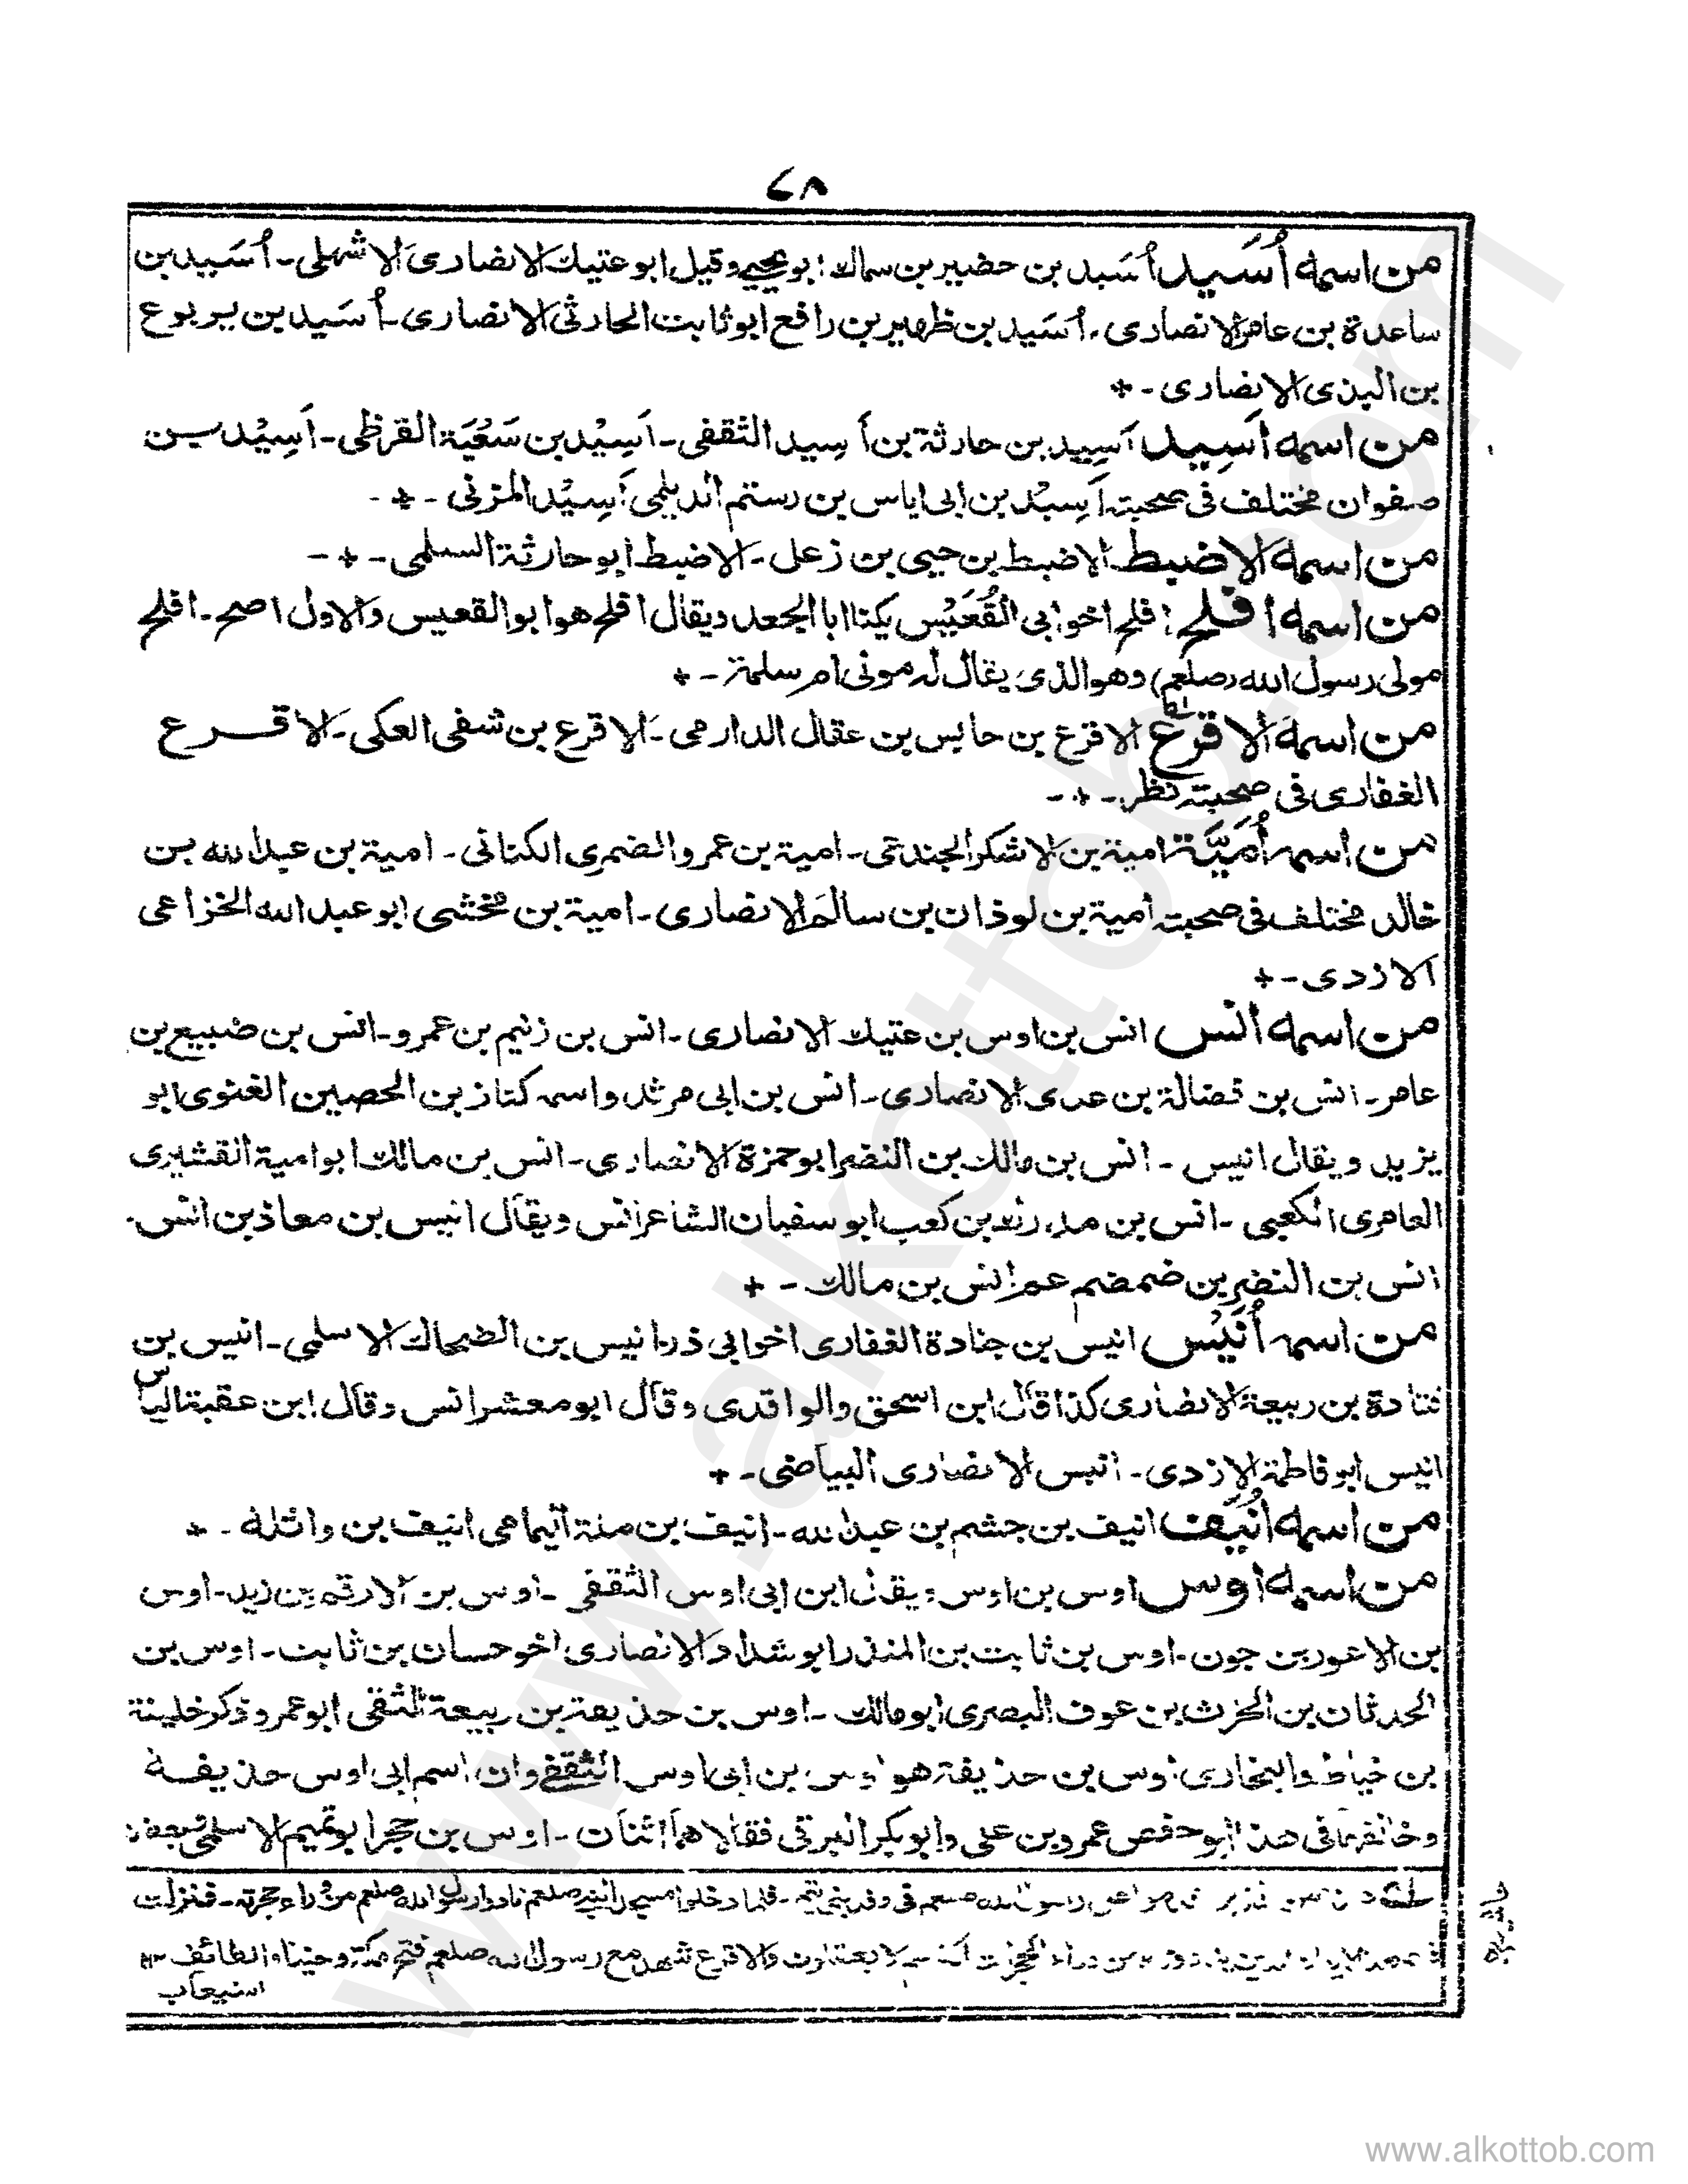 ٨٢
من اسمه أُسَيد أُسَيد بن حضير بن سماك ابو يحيى وقيل ابو عتيك الانصارى الاشهلى ـ أُسَيد بن
ساعدة بن عامر الانصارى ـ أُسَيد بن ظهير بن رافع ابو ثابت الحارثى الانصارى ـ أُسَيد بن يربوع
بن البدى الانصارى ـ +
من اسمه اَسِيد اَسِيد بن حارثة بن أسيد الثقفى ـ اَسِيْد بن سَعْيَة القرظى ـ اَسِيْد بن
صفوان مختلف فى صحبته اَسِيْد بن ابى اياس بن رستم الديلمى اَسِيْد المزنى ـ + ـ
من اسمه الاضبط الاضبط بن حيى بن زعل ـ الاضبط ابو حارثة السلمى ـ + ـ
من اسمه افلح افلح اخو ابى القُعَيْس يكنا ابا الجعد ويقال افلح هو ابو القعيس والاول اصح ـ افلح
مولى رسول الله (صلعم) وهو الذى يقال له مولى ام سلمة ـ +
من اسمه الاقرع الاقرع بن حابس بن عقال الدارمى ـ الاقرع بن شفى العكى ـ الاقرع
الغفارى فى صحبته نظر ـ + ـ
من اسمه أُمَيَّة امية بن الاشكر الجندعى ـ امية بن عمرو الضمرى الكنانى ـ امية بن عبد الله بن
خالد مختلف فى صحبته امية بن لوذان بن سالم الانصارى ـ امية بن مخشى ابو عبد الله الخزاعى
الازدى ـ +
من اسمه انس انس بن اوس بن عتيك الانصارى ـ انس بن زنيم بن عمرو ـ انس بن ضبيع بن
عامر ـ انس بن فضالة بن عدى الانصارى ـ انس بن ابى مرثد واسمه كناز بن الحصين الغنوى ابو
يزيد ويقال انيس ـ انس بن مالك بن النضر ابو حمزة الانصارى ـ انس بن مالك ابو امية القشيرى
العامرى الكعبى ـ انس بن بن كعب ابو سفيان الشاعر انس ويقال انيس بن معاذ بن انس ـ
انس بن النضر بن ضمضم عم انس بن مالك ـ +
من اسمه أُنَيْس انيس بن جنادة الغفارى اخو ابى ذر انيس بن الضحاك الاسلمى ـ انيس بن
قتادة بن ربيعة الانصارى كذا قال ابن اسحق والواقدى وقال ابو معشر انس وقال ابن عقبة الياس
انيس ابو فاطمة الازدى ـ انيس الانصارى البياضى ـ +
من اسمه اُنَيف انيف بن جشم بن عبد الله ـ انيف بن ملة اليمامى انيف بن واثلة ـ +
من اسمه اوس اوس بن اوس ويقال ابن ابى اوس الثقفى ـ اوس بن الارقم بن زيد ـ اوس
بن الاعور بن جون ـ اوس بن ثابت بن المنذر ابو شداد الانصارى اخو حسان بن ثابت ـ اوس بن
الحدثان بن الحرث بن عوف البصرى ابو مالك ـ اوس بن حذيفة بن ربيعة الثقفى ابو عمرو ذكر خليفة
بن خياط والبخارى اوس بن حذيفة هو اوس بن ابى اوس الثقفى وان اسم ابى اوس حذيفة
وخالفهما فى هذا ابو حفص عمرو بن على وابو بكر البرقى فقالا هما اثنان ـ اوس بن حجر ابو تميم الاسلمى
رسول الله صلعم فى وفد بنى تميم ـ فلما دخلوا مسجد النبى صلعم نادوا رسول الله صلعم من وراء حجرته ـ فنزلت
من وراء الحجرات اكثرهم لا يعقلون والاقرع شهد مع رسول الله صلعم فتح مكة وحنينا والطائف ١٢
استيعاب
www.alkottob.com
www.alkottob.com